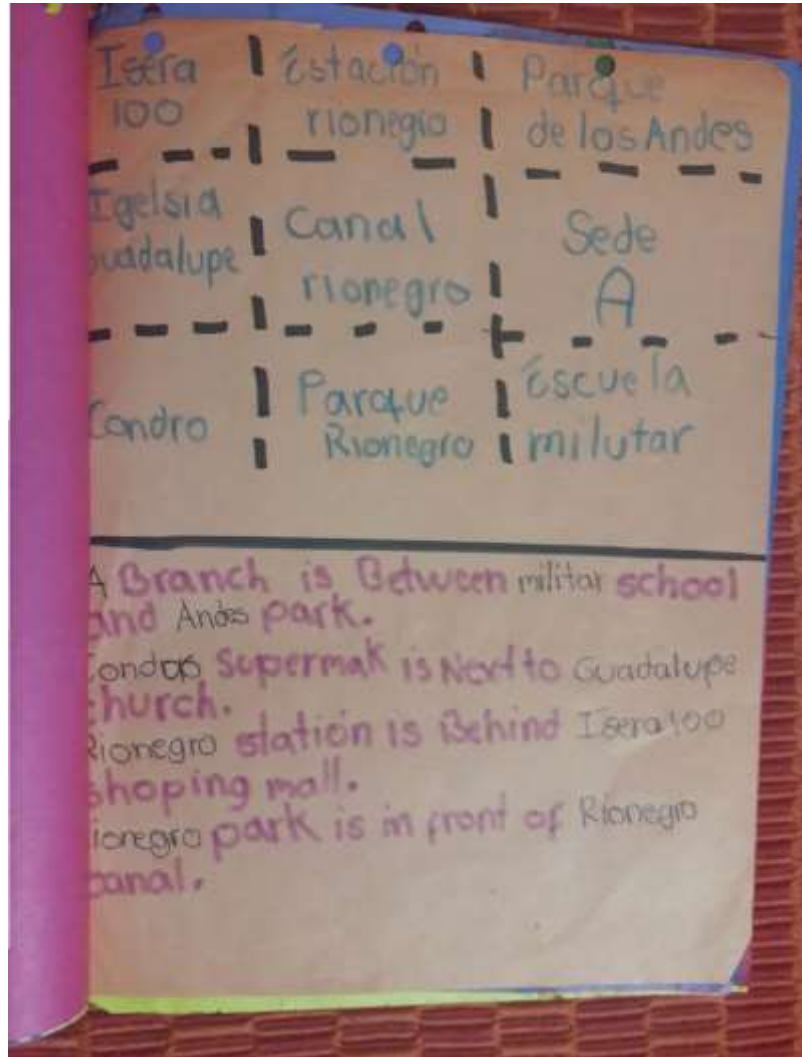 Isera Estación Parque
100 rionegro de los Andes
Igelsia Canal Sede
uadalupe rionegro A
Condro Parque Escuela
Rionegro milutar
A Branch is Between militar school
and Andes park.
Condor Supermak is Next to Guadalupe
church.
Rionegro station is Behind Isera 100
shoping mall.
ionegro park is in front of Rionegro
canal.